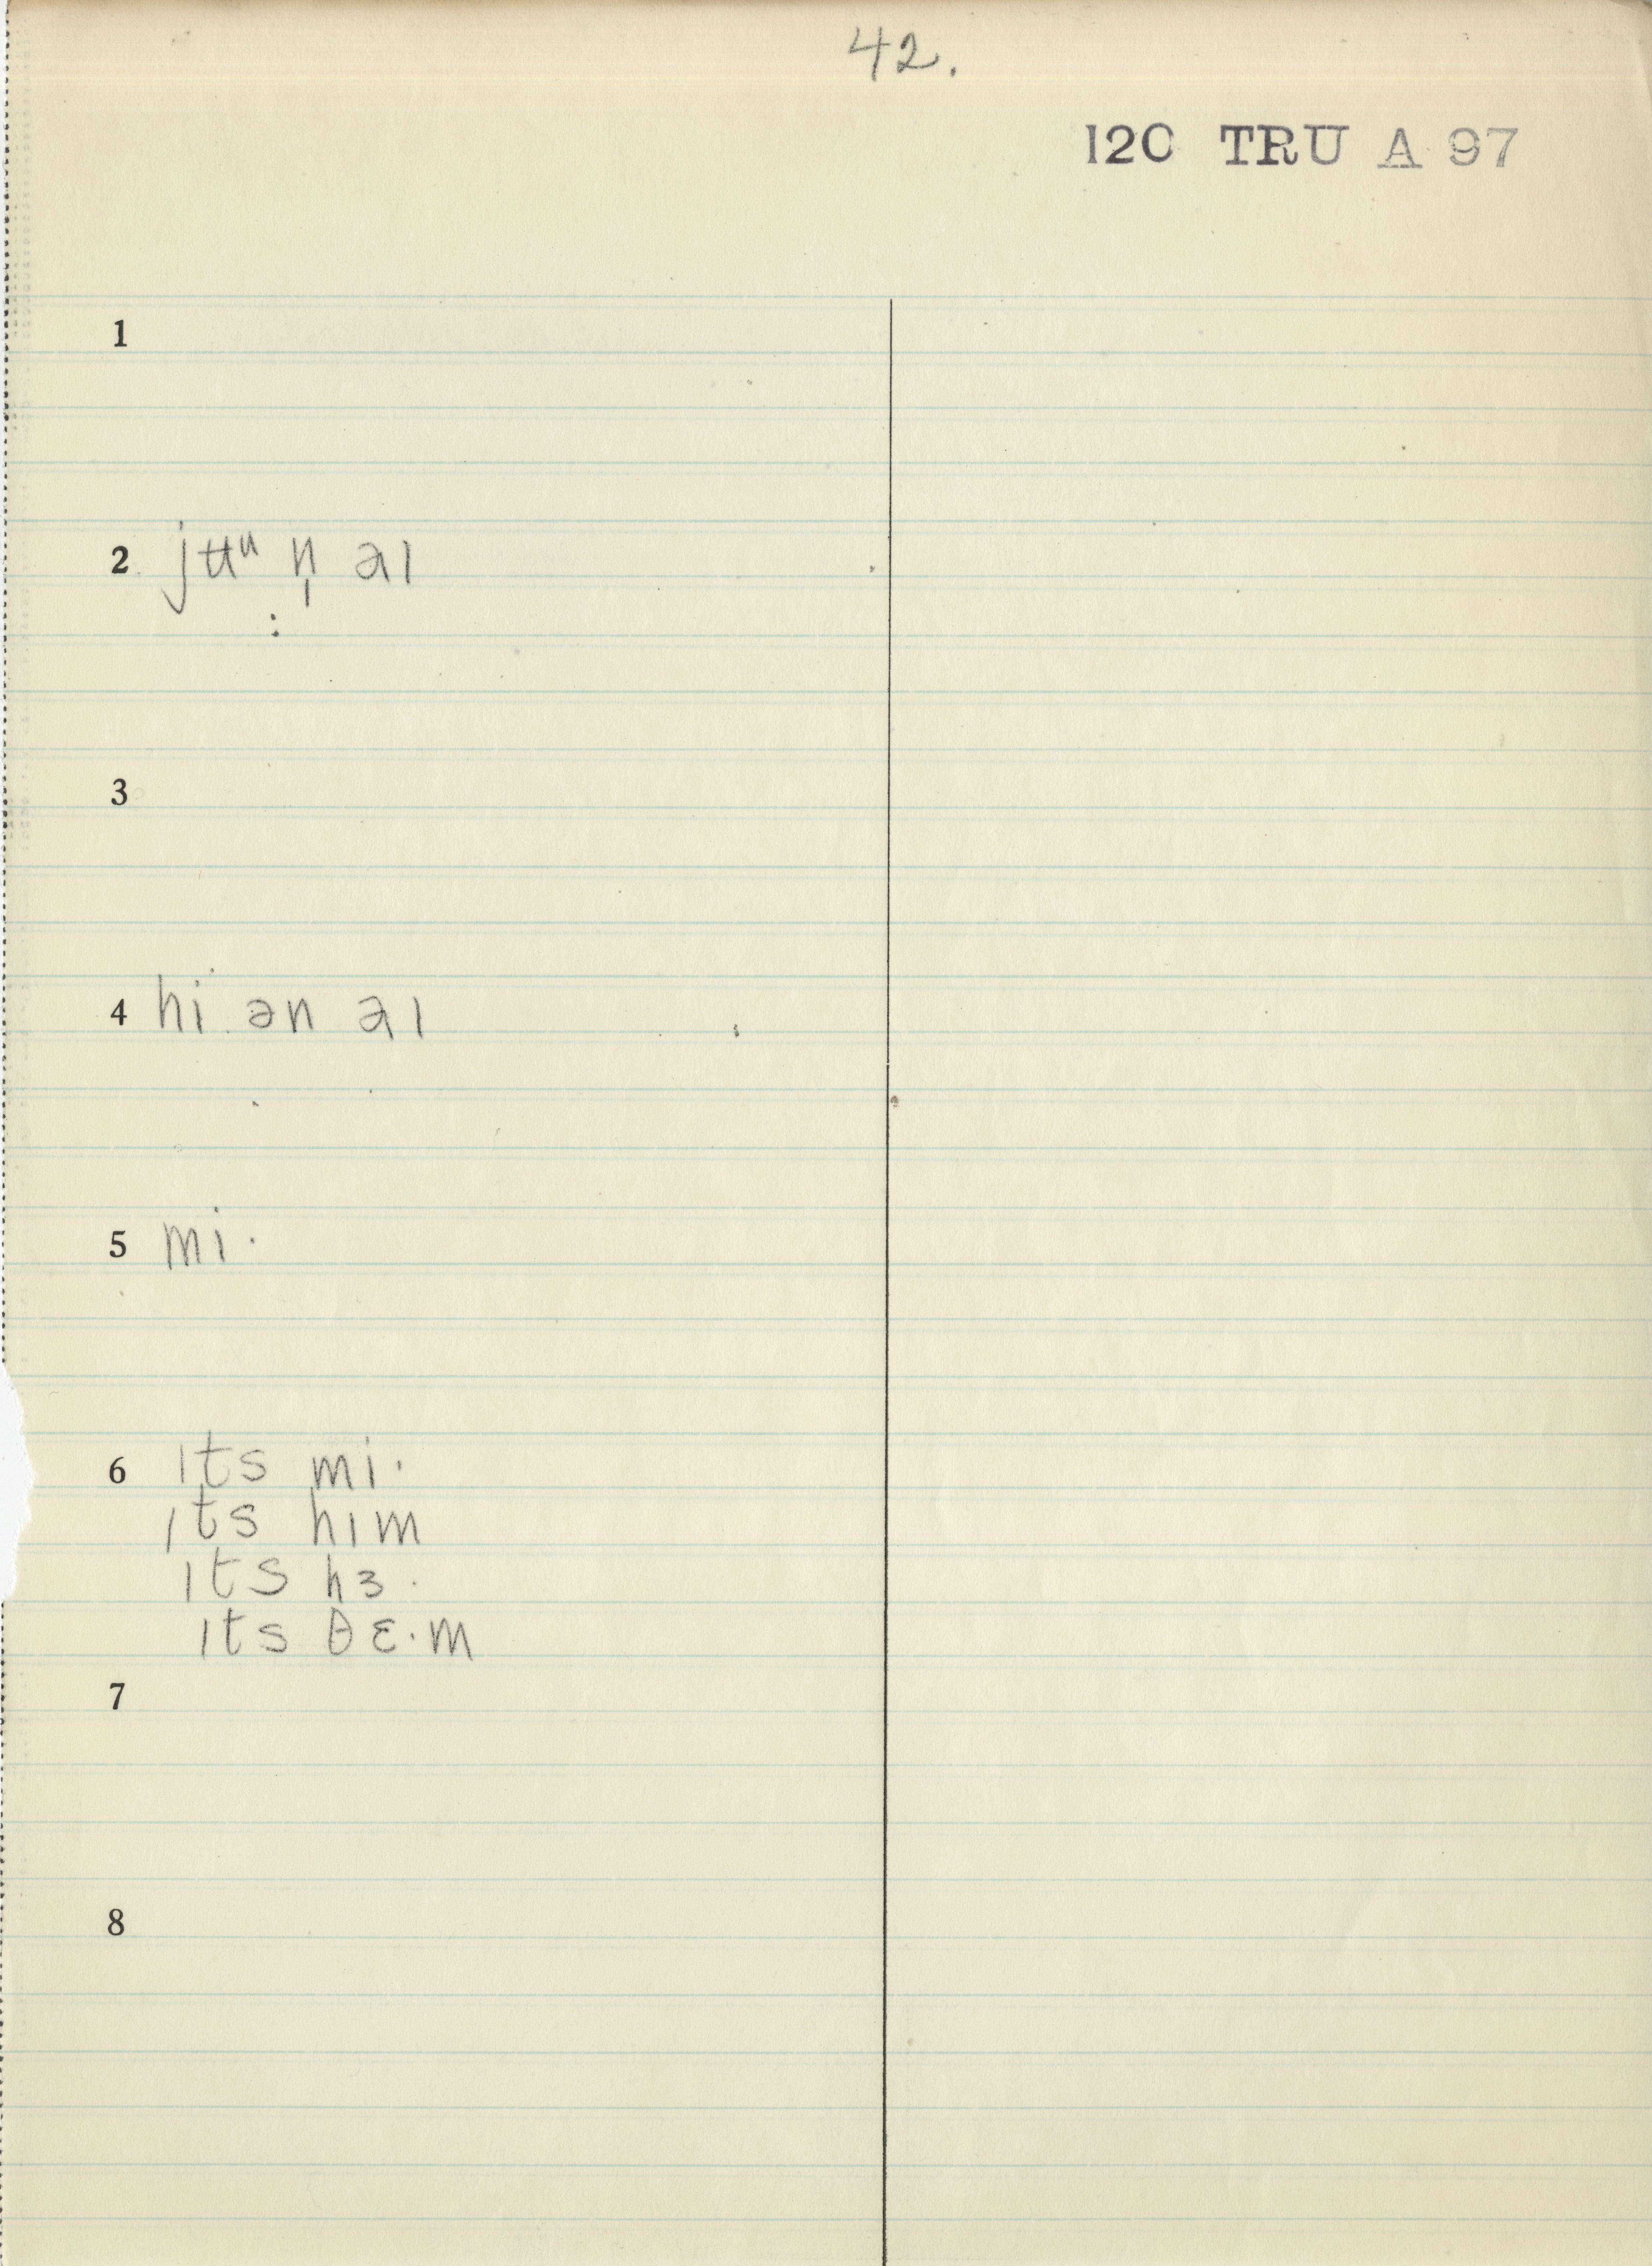 42.
120 TRU A 97
1
2 jʉᵘ n̩ aɪ
3
4 hi ən aɪ
5 mi·
6 ɪts mi·
ɪts hɪm
ɪts hɜ·
ɪts θɛ·m
7
8